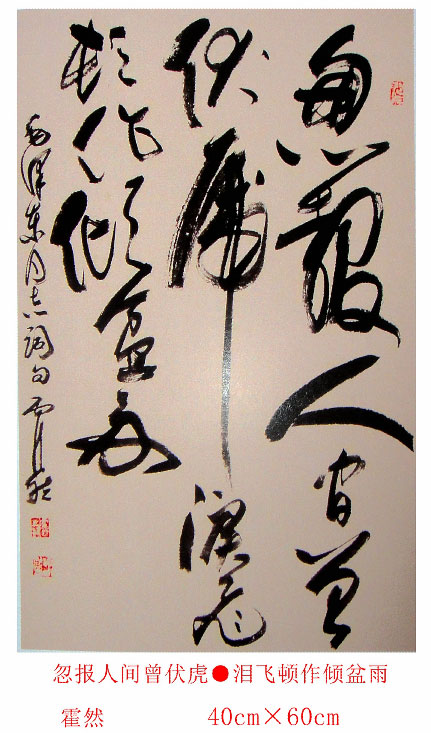 忽报人间曾
伏虎泪飞
顿作倾盆雨
毛泽东同志词句霍然
忽报人间曾伏虎●泪飞顿作倾盆雨
霍然 40cm×60cm